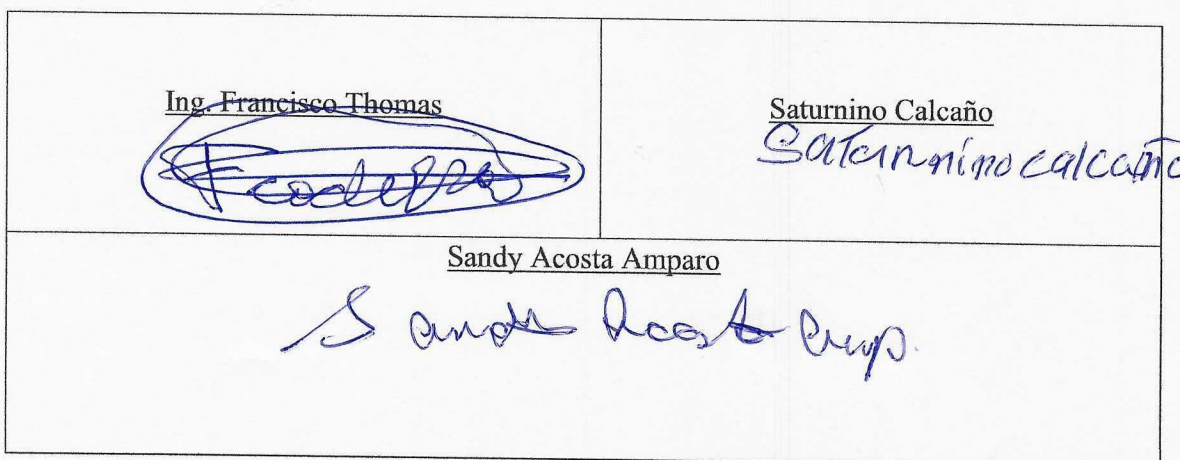 Ing. Francisco Thomas
Saturnino Calcaño
Saturnnino calcaño
Sandy Acosta Amparo
Sandy Acosta Amp.